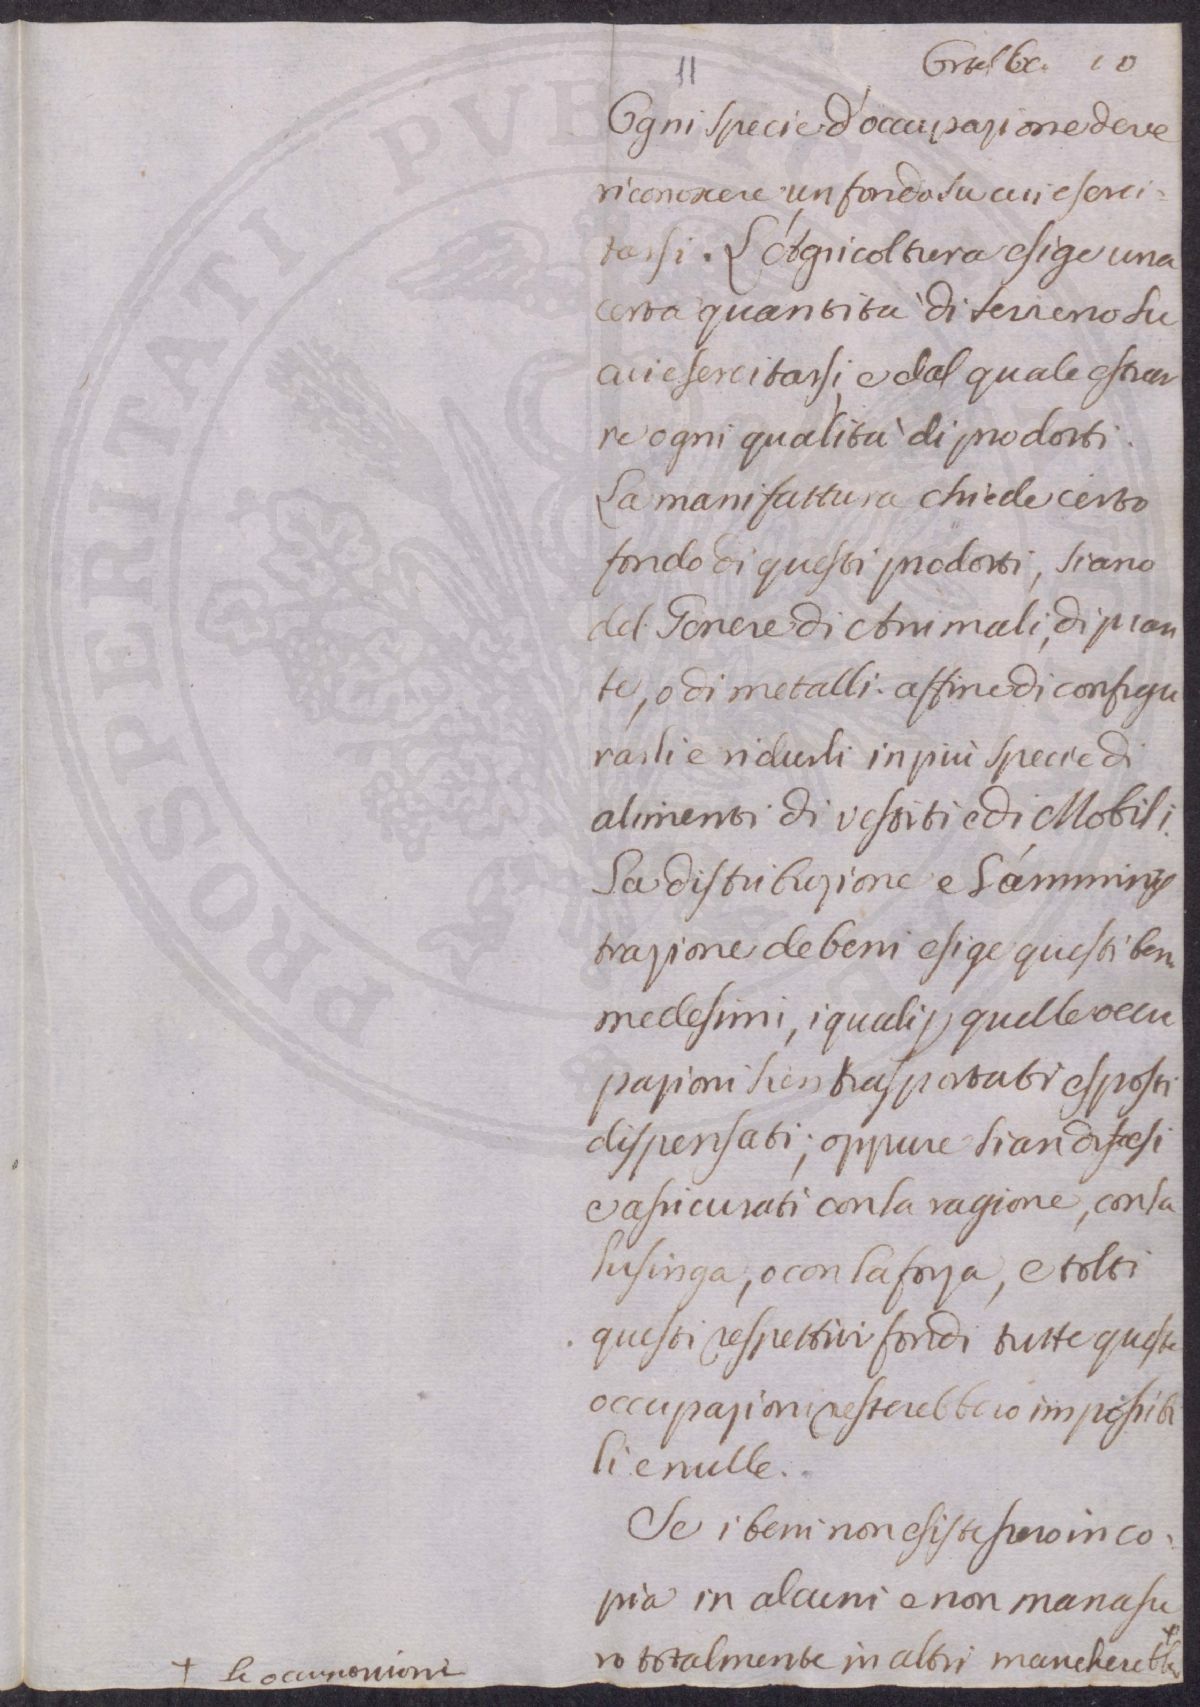 11
10
Ogni specie d'occupazione deve
riconoscere un fondo su cui eserci-
tarsi. L'Agricoltura esige una
certa quantità di terreno su
cui esercitarsi, e dal quale estrar
re ogni qualità di prodotti.
La manifattura chiede certo
fondo di questi prodotti, siano
del Genere di Animali, di pian
te, o di metalli affine di configu
rarli e ridurli in più specie di
alimenti di vestiti e di Mobili.
La distribuzione e l'amminis
trazione de beni esige questi beni
medesimi, i quali p quelle occu
pazioni sien trasportati esposti
dispensati; oppure sian difesi
e assicurati con la ragione, con la
lusinga, o con la forza, e tolti
questi respettivi fondi tutte queste
occupazioni resterebbero impossibi
li e nulle.
Se i beni non esistessero in co-
pia in alcuni e non mancasse
ro totalmente in altri mancherebbe +
+ le occupazioni
PROSPERITATI PUBLICAE